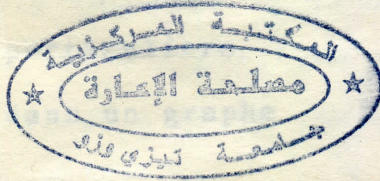 المكتبة المركزية
مصلحة الإعارة
جامعة تيزي وزو
graphe